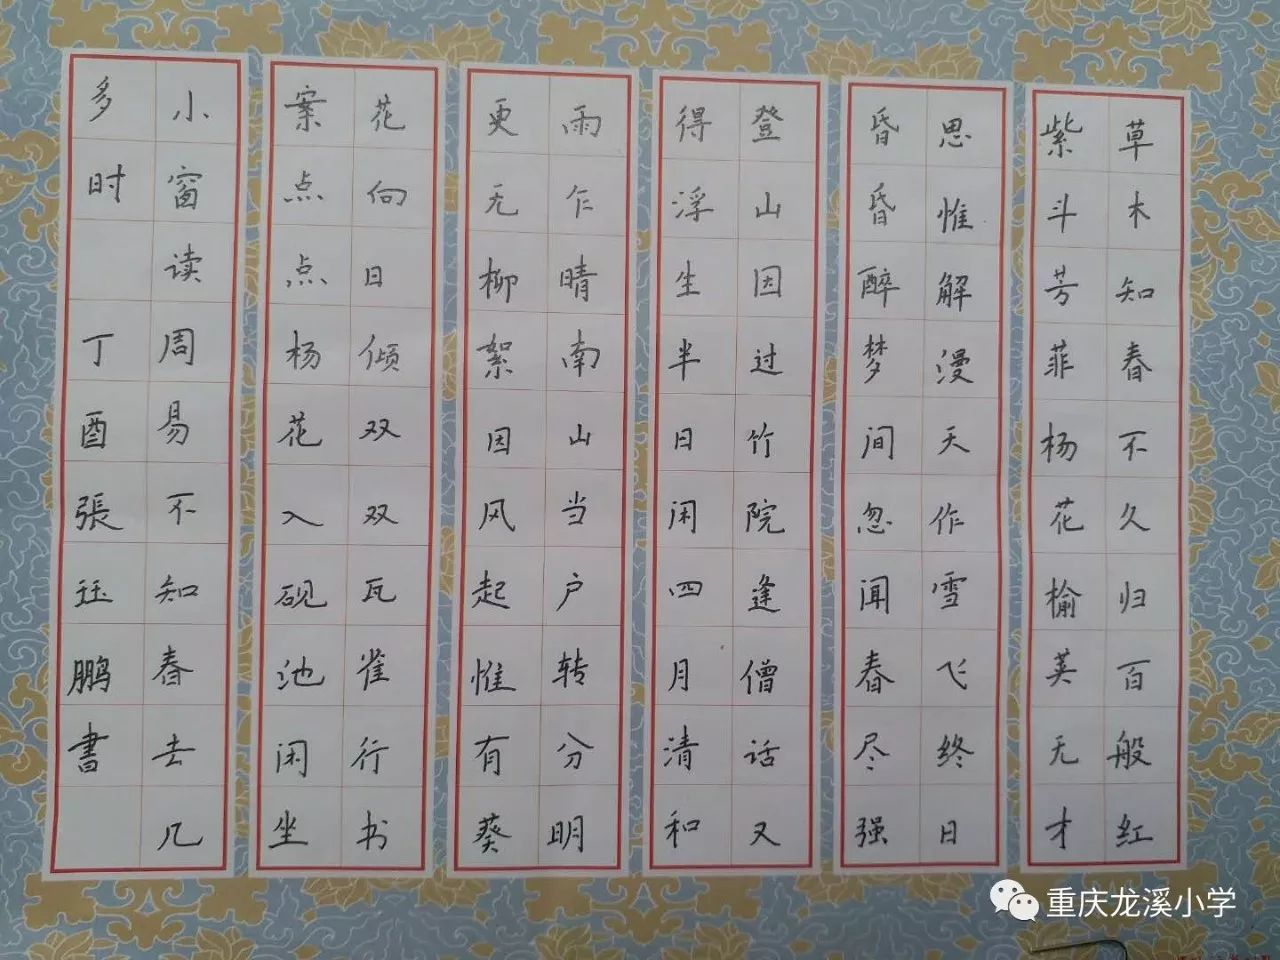 草木知春不久归百般红
紫斗芳菲杨花榆荚无才
思惟解漫天作雪飞终日
昏昏醉梦间忽闻春尽强
登山因过竹院逢僧话又
得浮生半日闲四月清和
雨乍晴南山当户转分明
更无柳絮因风起惟有葵
花向日倾双双瓦雀行书
案点点杨花入砚池闲坐
小窗读周易不知春去几
多时 丁酉張珏鹏書
重庆龙溪小学